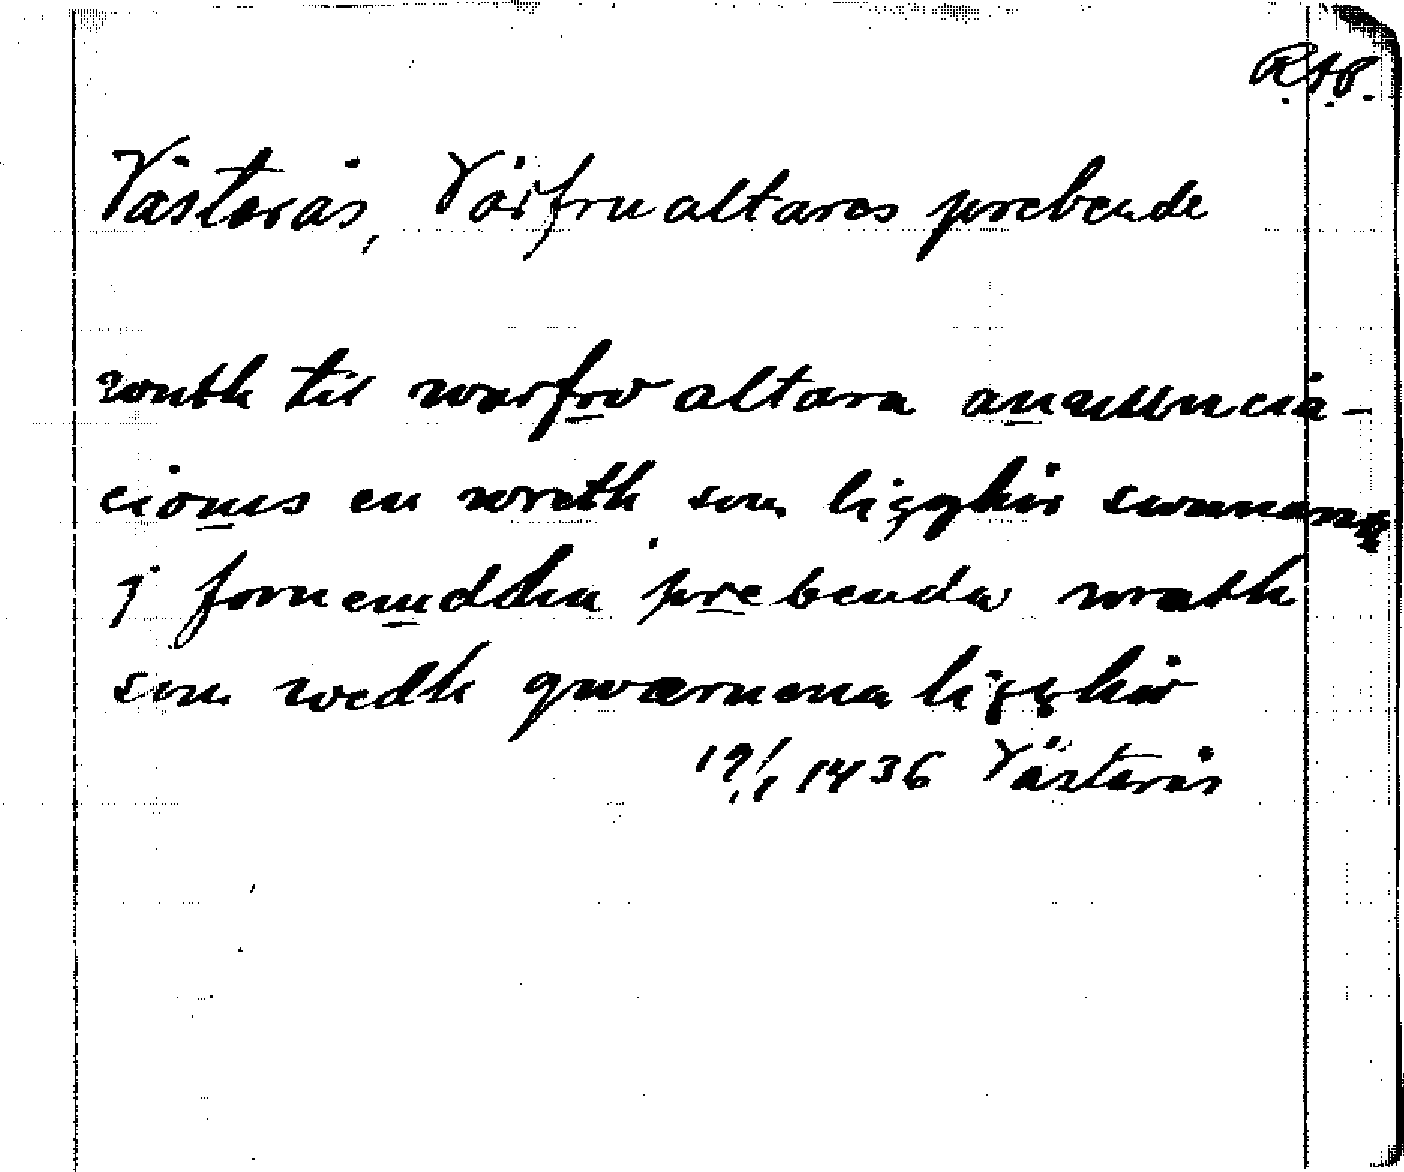 R.A.P.
Västerås, Vårfrualtares prebende
til warfrw altara annuncia-
cionis en wreth som ligghir swnnarst
j fornemdha prebenda wreth
som wedh qwærnena ligghir
19/1 1436 Västerås